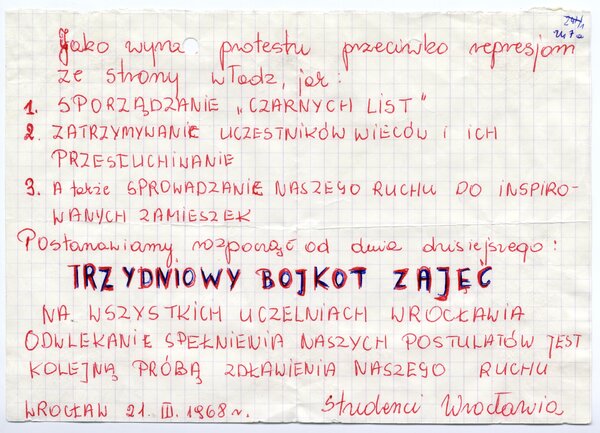 Jako wyraz protestu przeciwko represjom
ze strony władz, jak:
1. SPORZĄDZANIE „CZARNYCH LIST"
2. ZATRZYMYWANIE UCZESTNIKÓW WIECÓW I ICH
PRZESŁUCHIWANIE
3. A także SPROWADZANIE NASZEGO RUCHU DO INSPIRO-
WANYCH ZAMIESZEK
Postanawiamy rozpocząć od dnia dzisiejszego:
TRZYDNIOWY BOJKOT ZAJĘĆ
NA WSZYSTKICH UCZELNIACH WROCŁAWIA
ODWLEKANIE SPEŁNIENIA NASZYCH POSTULATÓW JEST
KOLEJNĄ PRÓBĄ ZDŁAWIENIA NASZEGO RUCHU
WROCŁAW 21. III. 1968 r. Studenci Wrocławia